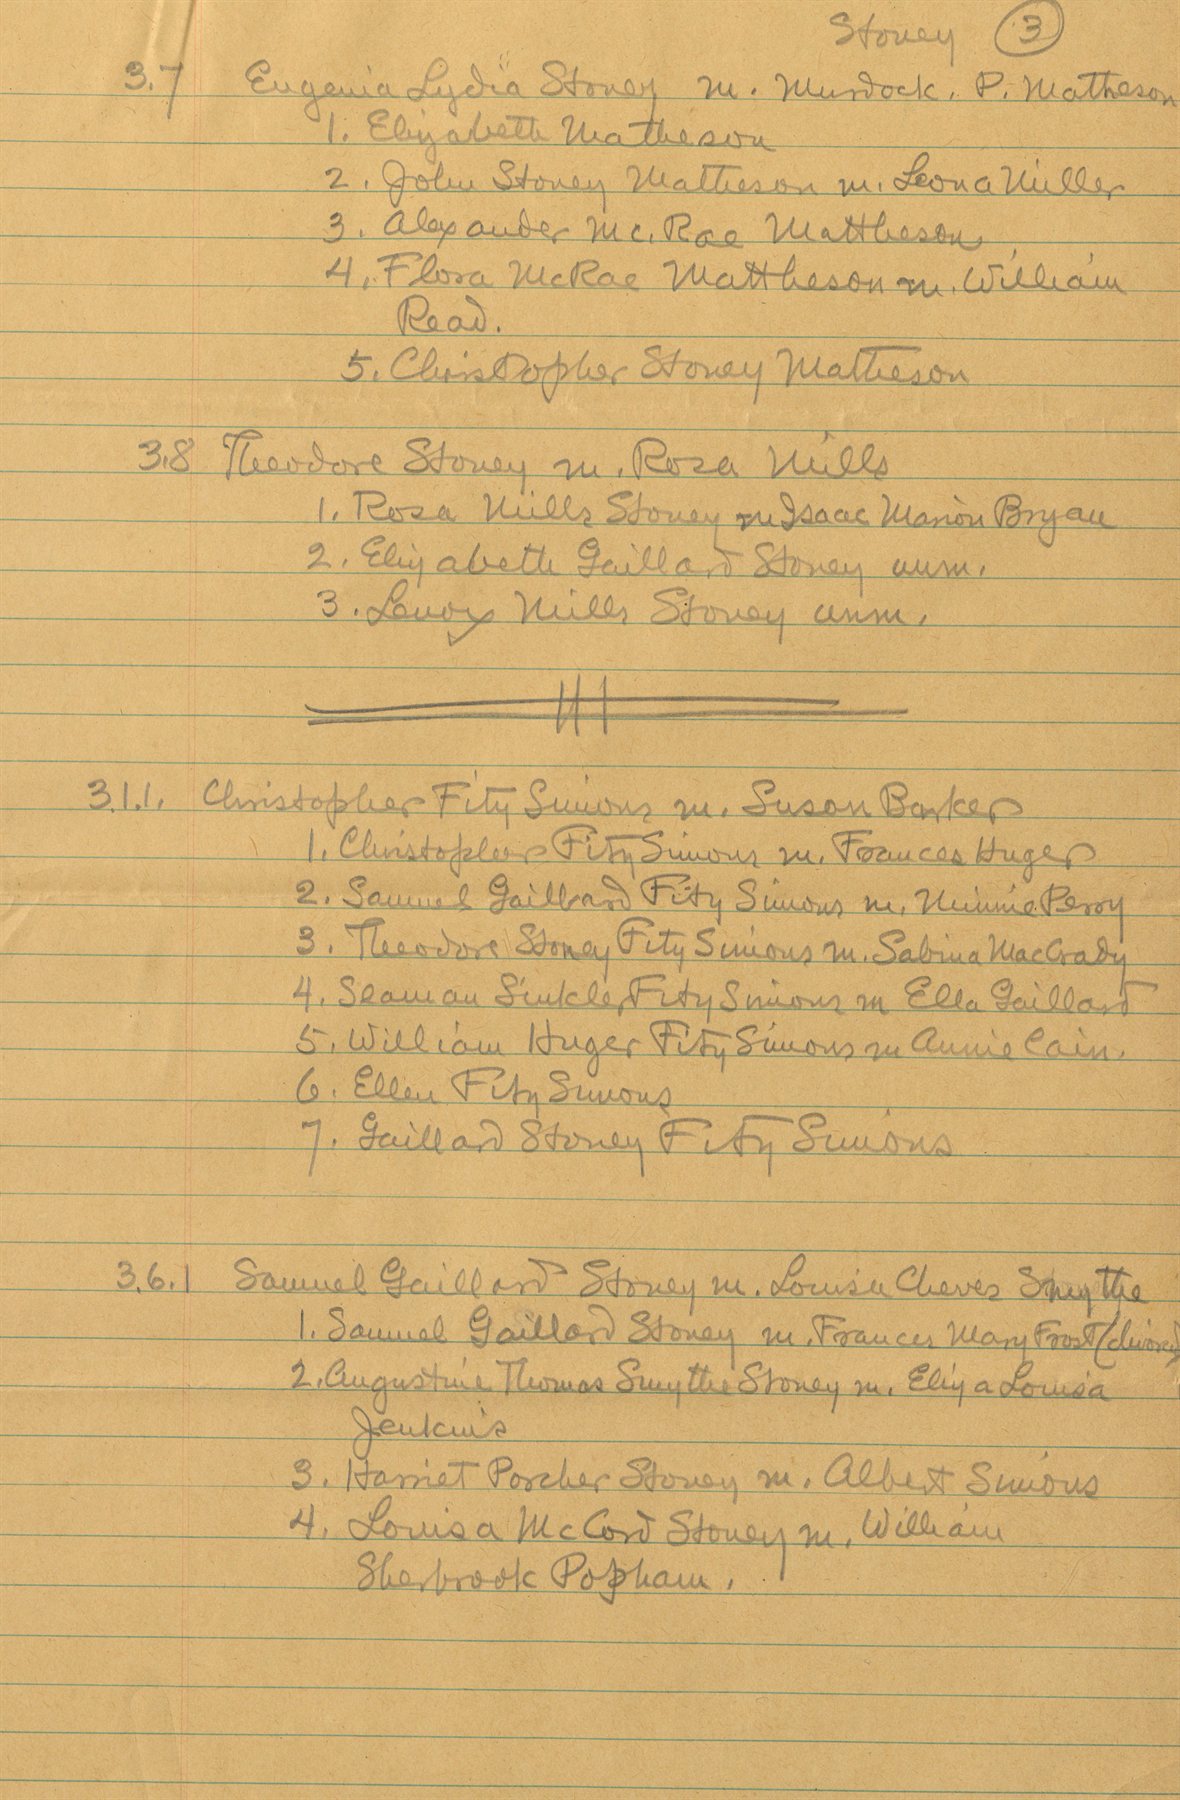 Stoney 3
3.7 Eugenia Lydia Stoney m. Murdock. P. Matheson
1. Elizabeth Matheson
2. John Stoney Matheson m. Leona Miller
3. Alexander Mc.Rae Mattheson
4. Flora McRae Mattheson m. William
Read.
5. Christopher Stoney Matheson
3.8 Theodore Stoney m. Rosa Mills
1. Rosa Mills Stoney m Isaac Marion Bryan
2. Elizabeth Gaillard Stoney unm.
3. Lenox Mills Stoney unm.
3.1.1. Christopher FitzSimons m. Susan Barker
1. Christopher FitzSimons m. Frances Huger
2. Samuel Gaillard FitzSimons m. Minnie Perry
3. Theodore Stoney FitzSimons m. Sabina MacCrady
4. Seaman Sinkler FitzSimons m Ella Gaillard
5. William Huger FitzSimons m Annie Cain.
6. Ellen FitzSimons
7. Gaillard Stoney FitzSimons
3.6.1 Samuel Gaillard Stoney m. Louisa Cheves Smythe
1. Samuel Gaillard Stoney m. Frances Mary Frost (divorced
2. Augustine Thomas Smythe Stoney m. Eliza Louisa
Jenkins
3. Harriet Porcher Stoney m. Albert Simons
4. Louisa McCord Stoney m. William
Sherbrook Popham.